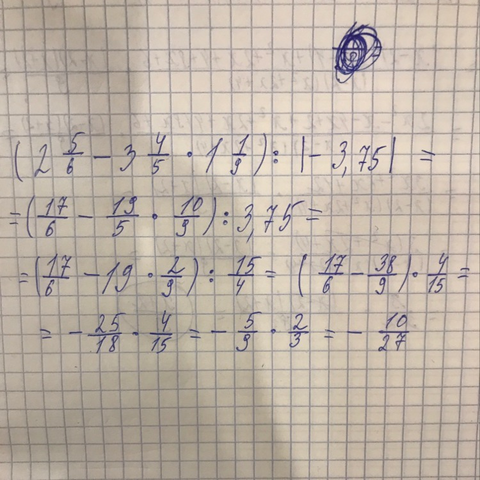 (2 5/6 − 3 4/5 · 1 1/9) : |− 3,75| =
= (17/6 − 19/5 · 10/9) : 3,75 =
= (17/6 − 19 · 2/9) : 15/4 = (17/6 − 38/9) · 4/15 =
= − 25/18 · 4/15 = − 5/9 · 2/3 = − 10/27